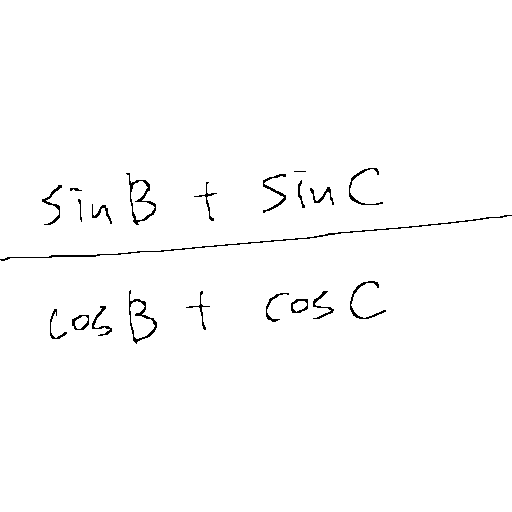 sinB + sinC
cosB + cosC